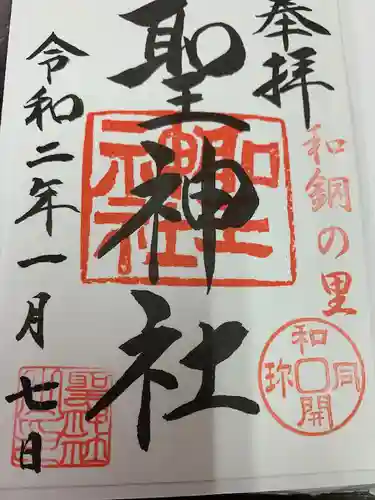 奉拝
和銅の里
和同開珎
聖神社
令和二年一月七日
聖神社